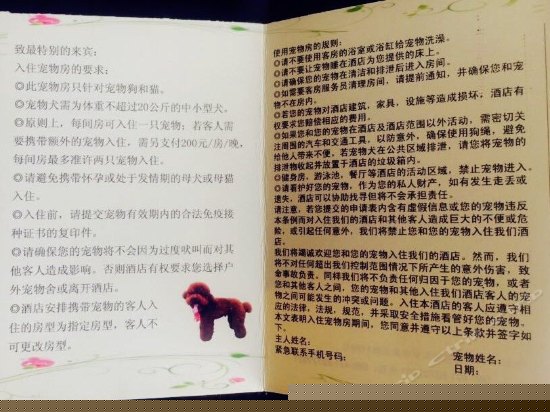 致最特别的来宾:
入住宠物房的要求:
◎此宠物房只针对宠物狗和猫。
◎宠物犬需为体重不超过20公斤的中小型犬。
◎原则上，每间房可入住一只宠物；若客人需
要携带额外的宠物入住，需另支付200元/房/晚，
每间房最多准许两只宠物入住。
◎请避免携带怀孕或处于发情期的母犬或母猫
入住。
◎入住前，请提交宠物有效期内的合法免疫接
种证书的复印件。
◎请确保您的宠物将不会因为过度吠叫而对其
他客人造成影响。否则酒店有权要求您选择户
外宠物舍或离开酒店。
◎酒店安排携带宠物的客人入
住的房型为指定房型，客人不
可更改房型。
使用宠物房的规则:
◎请不要使用客房的浴室或浴缸给宠物洗澡。
◎请不要让宠物睡在酒店为您提供的床上。
◎请确保您的宠物在清洁和排泄后进入房间。
◎如需要客房服务员清理房间，请提前通知，并确保您和宠
物不在房内。
◎若您的宠物对酒店建筑，家具，设施等造成损坏，酒店有
权要求您赔偿相应的费用。
◎如果您和您的宠物在酒店及酒店范围以外活动，需密切关
注周围的汽车和交通工具，以防意外，确保使用狗绳，避免
给他人带来不便，若宠物犬在公共区域排泄，请您将宠物的
排泄物收起并放置于酒店的垃圾箱内。
◎健身房，游泳池，餐厅等酒店的活动区域，禁止宠物进入。
◎请看护好您的宠物，作为您的私人财产，如有发生走丢或
遗失，酒店可以协助找寻但将不会承担责任。
请注意，若您提交的申请表内含有虚假信息或您的宠物违反
本条例而对入住我们的酒店和其他客人造成巨大的不便或危
险，或引起任何意外，我们将禁止您和您的宠物入住我们酒
店。
我们将竭诚欢迎您和您的宠物入住我们的酒店。然而，我们
将不对任何超出我们控制范围情况下所产生的意外伤害，致
命事故负责。同样我们将不负责任何归因于您的宠物，或者
您和其他客人之间，您的宠物和其他入住我们酒店客人的宠
物之间可能发生的冲突或问题。入住本酒店的客人应遵守相
应的法律，法规，规范，并采取安全措施看管好您的宠物。
本文表明入住宠物房期间，您同意并遵守以上条款并签字如
下。
主人姓名:
宠物姓名:
紧急联系手机号码:
日期: